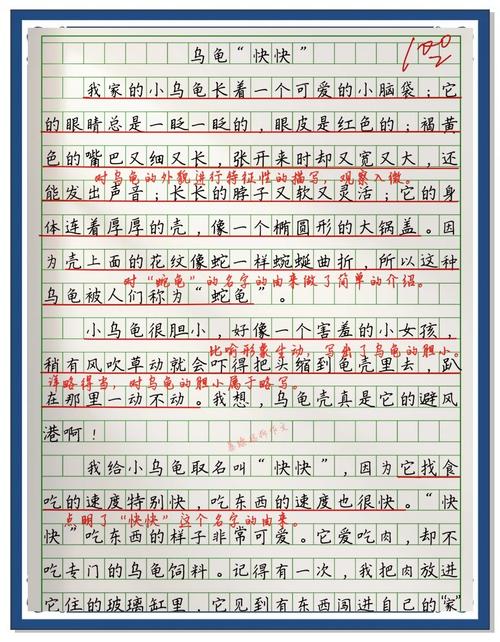 乌龟“快快”
100
我家的小乌龟长着一个可爱的小脑袋;它
的眼睛总是一眨一眨的,眼皮是红色的;褐黄
色的嘴巴又细又长,张开来时却又宽又大,还
对乌龟的外貌进行特征性的描写,观察入微。
能发出声音;长长的脖子又软又灵活;它的身
体连着厚厚的壳,像一个椭圆形的大锅盖。因
为壳上面的花纹像蛇一样蜿蜒曲折,所以这种
对“蛇龟”的名字的由来做了简单的介绍。
乌龟被人们称为“蛇龟”。
小乌龟很胆小,好像一个害羞的小女孩,
比喻形象生动,写出了乌龟的胆小。
稍有风吹草动就会吓得把头缩到龟壳里去,趴
详略得当,对乌龟的胆小属于略写。
在那里一动不动。我想,乌龟壳真是它的避风
港啊!
我给小乌龟取名叫“快快”,因为它找食
吃的速度特别快,吃东西的速度也很快。“快
点明了“快快”这个名字的由来。
快”吃东西的样子非常可爱。它爱吃肉,却不
吃专门的乌龟饲料。记得有一次,我把肉放进
它住的玻璃缸里,它见到有东西闯进自己的“家”